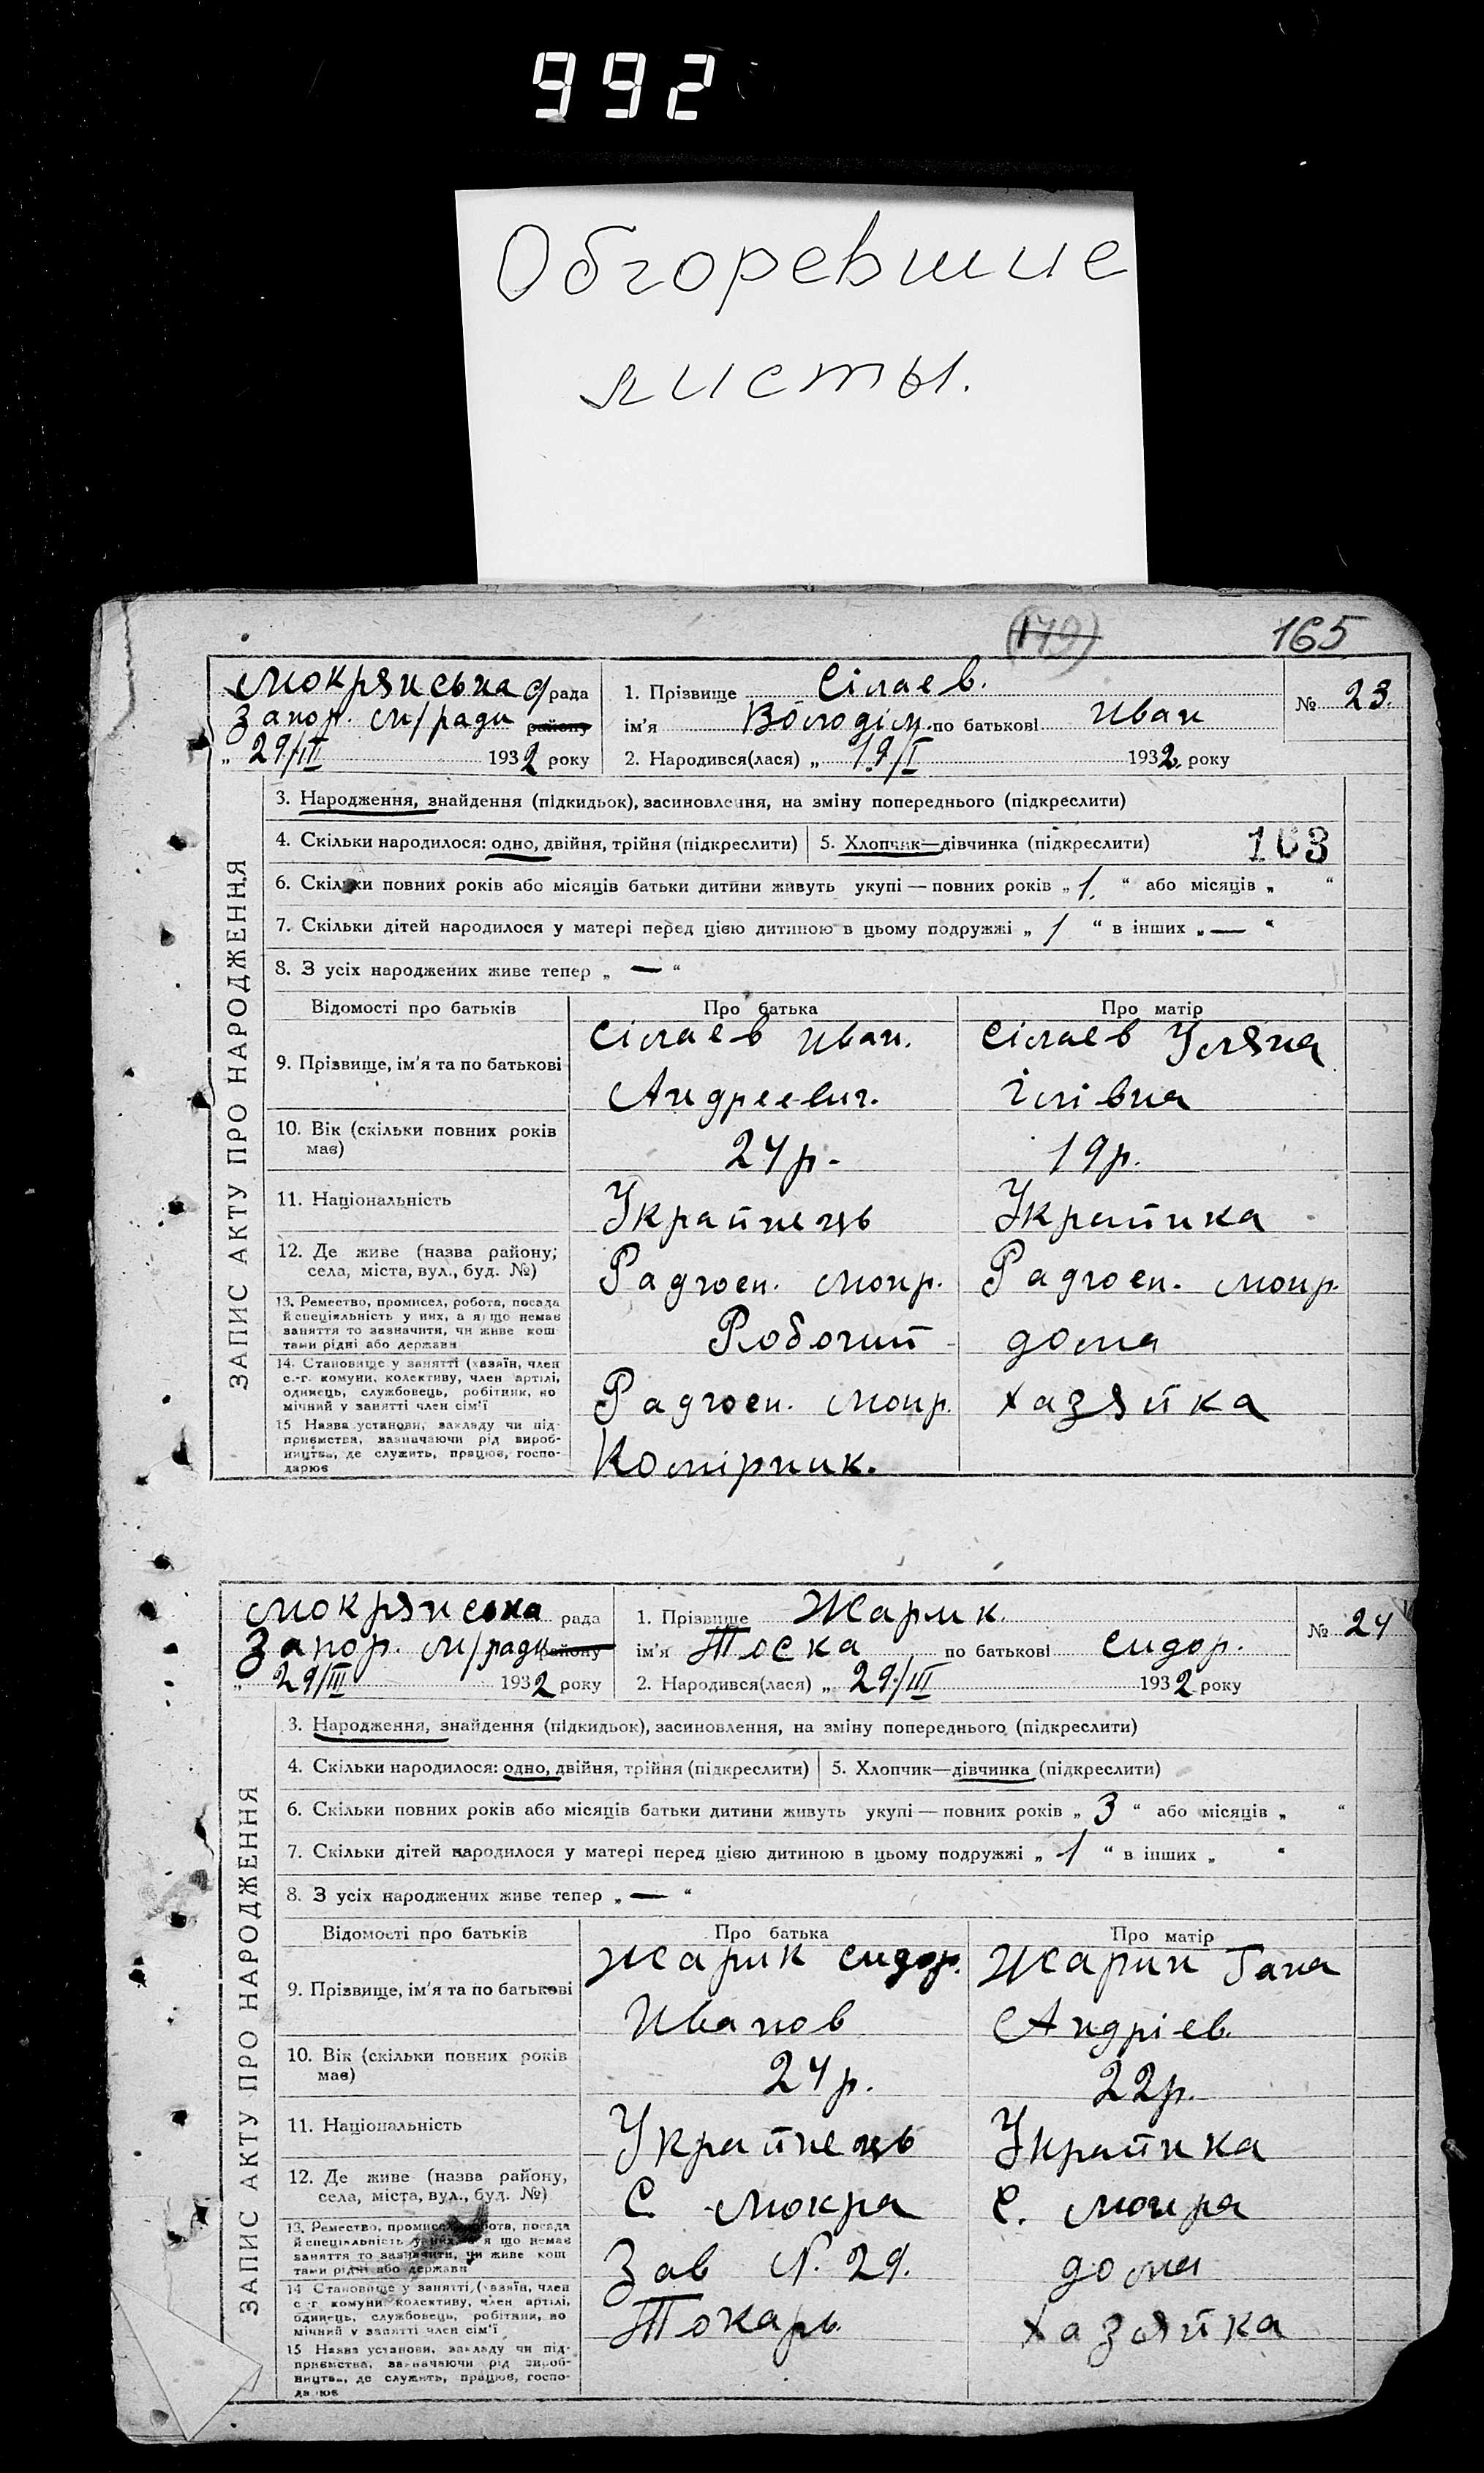 992
Обгоревшие
листы.
(179) 165
Мокрянська с/рада
Запор. м/ради району
„ 29/III 1932 року
1. Прізвище Сілаев.
ім'я Володім. по батькові Иван
2. Народився(лася) „ 19/I 1932 року
№ 23.
ЗАПИС АКТУ ПРО НАРОДЖЕННЯ
3. Народження, знайдення (підкидьок), засиновлення, на зміну попереднього (підкреслити)
4. Скільки народилося: одно, двійня, трійня (підкреслити) 5. Хлопчик—дівчинка (підкреслити)
163
6. Скільки повних років або місяців батьки дитини живуть укупі — повних років „ 1. “ або місяців „ “
7. Скільки дітей народилося у матері перед цією дитиною в цьому подружжі „ 1 “ в інших „ — “
8. З усіх народжених живе тепер „ — “
Відомості про батьків Про батька Про матір
9. Прізвище, ім'я та по батькові
Сілаев Иван.
Андреевич.
Сілаев Уляна
Ілівна
10. Вік (скільки повних років
має)
24 р. 19 р.
11. Національність Украпнець Украпнка
12. Де живе (назва району,
села, міста, вул., буд. №)
Радгосп. Мокр. Радгосп. Мокр.
13. Ремество, промисел, робота, посада
й спеціяльність у них, а якщо немає
заняття то зазначити, чи живе кош
тами рідні або держави
Робочий дома
14. Становище у занятті (хазяїн, член
с.-г. комуни, колективу, член артілі,
одинець, службовець, робітник, по
мічний у занятті член сім'ї
Радгосп. Мокр. хазяйка
15 Назва установи, закладу чи під-
приємства, зазначаючи рід вироб-
ництва, де служить, працює, госпо-
дарює
Комірник.
Мокрянська рада
Запор. м/ради району
„ 29/III 1932 року
1. Прізвище Жарик.
ім'я Тоска по батькові Сидор.
2. Народився(лася) „ 29/III 1932 року
№ 24
ЗАПИС АКТУ ПРО НАРОДЖЕННЯ
3. Народження, знайдення (підкидьок), засиновлення, на зміну попереднього (підкреслити)
4. Скільки народилося: одно, двійня, трійня (підкреслити) 5. Хлопчик—дівчинка (підкреслити)
6. Скільки повних років або місяців батьки дитини живуть укупі — повних років „ 3 “ або місяців „ “
7. Скільки дітей народилося у матері перед цією дитиною в цьому подружжі „ 1 “ в інших „ “
8. З усіх народжених живе тепер „ — “
Відомості про батьків Про батька Про матір
9. Прізвище, ім'я та по батькові
Жарик Сидор.
Иванов
Жарик Гана
Андріев.
10. Вік (скільки повних років
має)
24 р. 22 р.
11. Національність Украпнець Украпнка
12. Де живе (назва району,
села, міста, вул., буд. №)
С. Мокра С. Мокра
13. Ремество, промисел, робота, посада
й спеціяльність у них, а якщо немає
заняття то зазначити, чи живе кош
тами рідні або держави
Зав N. 29. дома
14 Становище у занятті, (хазяїн, член
с г комуни колективу, член артілі,
одинець, службовець, робітник, по
мічний у занятті член сім'ї
Токарь хазяйка
15 Назва установи, закладу чи під-
приємства, зазначаючи рід вироб-
ництва, де служить, працює, госпо-
дарює